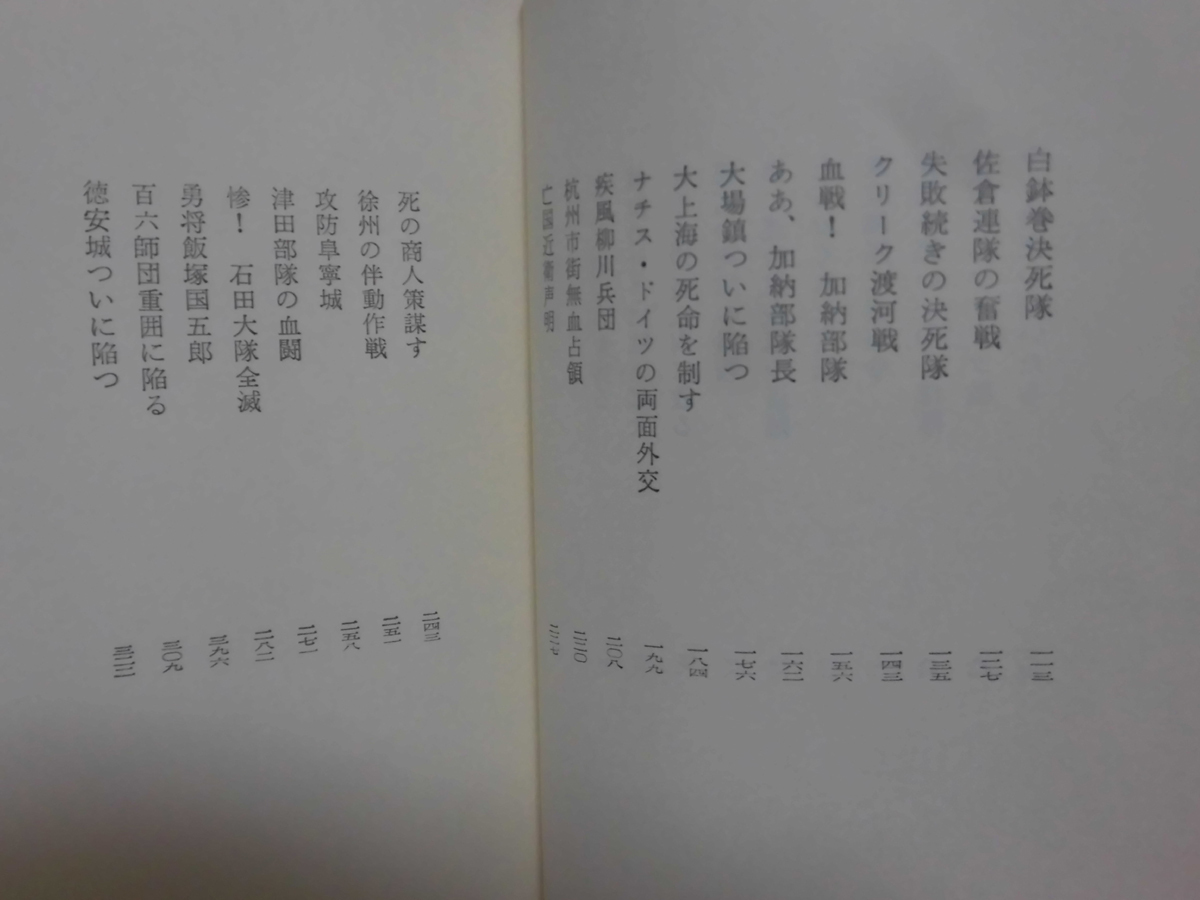 白鉢巻決死隊 一一三
佐倉連隊の奮戦 一二七
失敗続きの決死隊 一三五
クリーク渡河戦 一四三
血戦! 加納部隊 一五六
ああ、加納部隊長 一六二
大場鎮ついに陥つ 一七六
大上海の死命を制す 一八四
ナチス・ドイツの両面外交 一九九
疾風柳川兵団 二〇八
杭州市街無血占領 二二〇
亡国近衛声明 二二七
死の商人策謀す 二四三
徐州の伴動作戦 二五一
攻防阜寧城 二五八
津田部隊の血闘 二七一
惨! 石田大隊全滅 二八二
勇将飯塚国五郎 二九六
百六師団重囲に陥る 三〇九
徳安城ついに陥つ 三二二